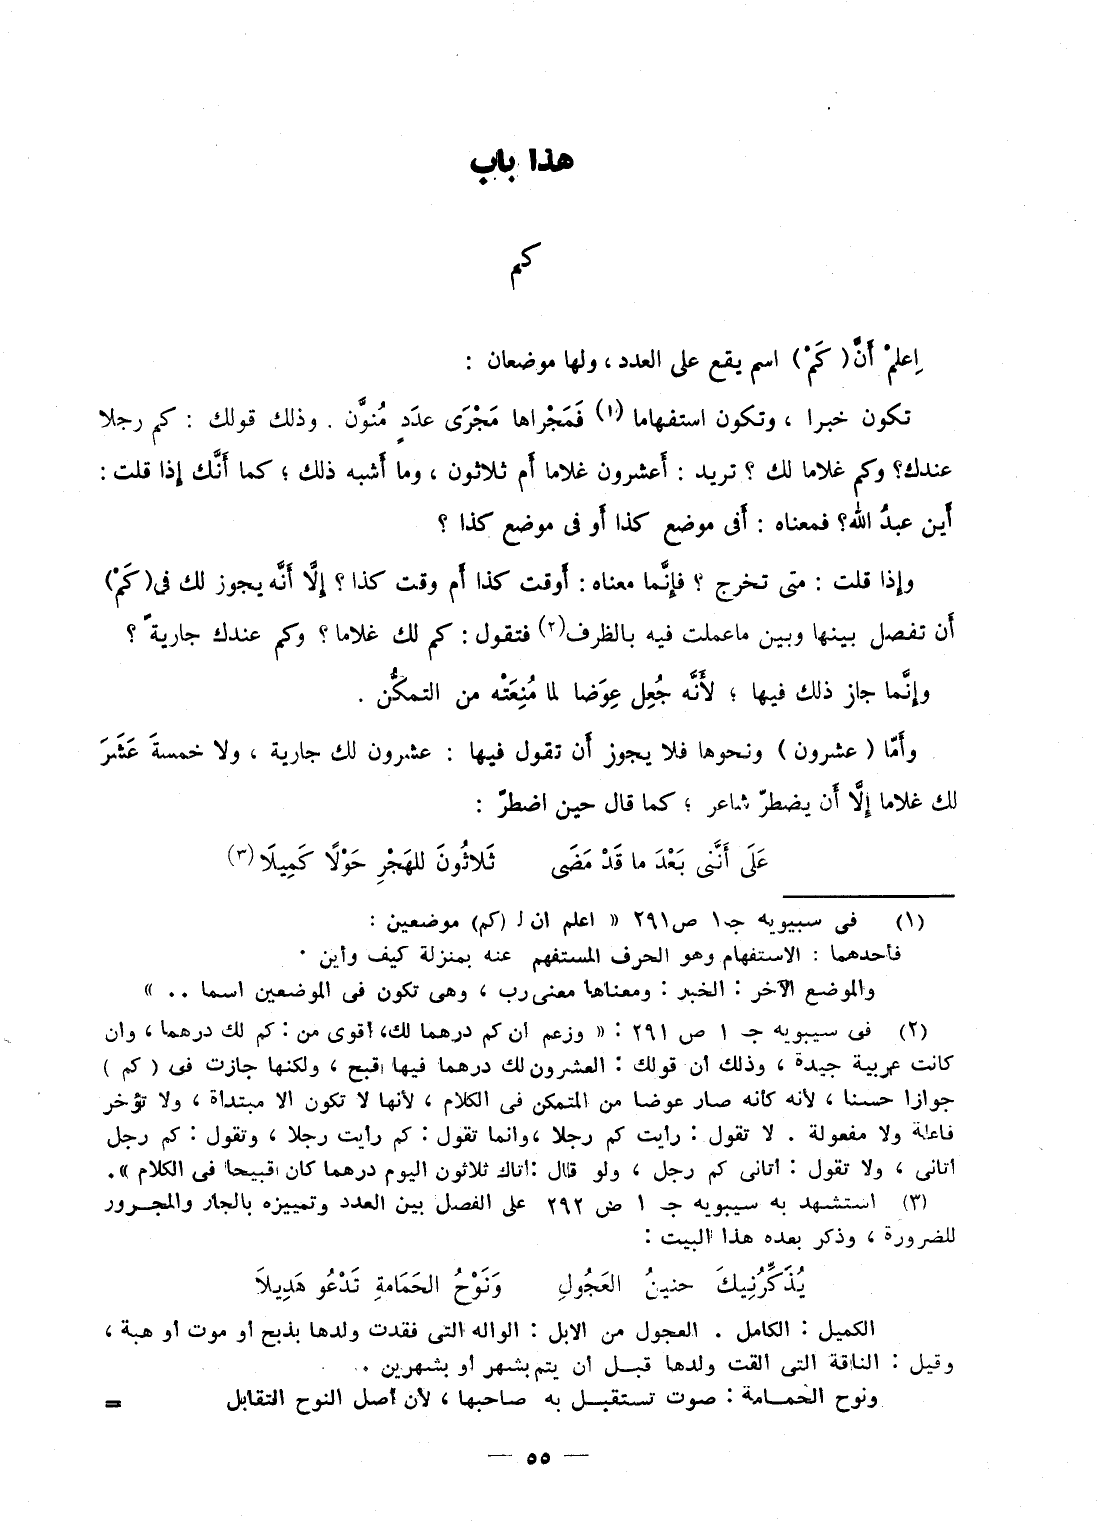 هذا باب
كم
اِعلمْ أَنَّ ( كَمْ ) اسم يقع على العدد ، ولها موضعان :
تكون خبرا ، وتكون استفهاما (١) فَمَجْراها مَجْرَى عددٍ مُنوَّن . وذلك قولك : كم رجلا
عندك؟ وكم غلاما لك ؟ تريد : أَعشرون غلاما أَم ثلاثون ، وما أَشبه ذلك ؛ كما أَنَّك إذا قلت :
أَين عبدُ الله؟ فمعناه : أَفى موضع كذا أَو فى موضع كذا ؟
وإذا قلت : متى تخرج ؟ فإنَّما معناه : أَوقت كذا أَم وقت كذا ؟ إلَّا أَنَّه يجوز لك فى( كَمْ )
أَن تفصل بينها وبين ماعملت فيه بالظرف(٢) فتقول : كم لك غلاما ؟ وكم عندك جارية ً ؟
وإنَّما جاز ذلك فيها ؛ لأَنَّه جُعِل عِوَضا لما مُنِعَتْه من التمكُّن .
وأَمّا ( عشرون ) ونحوها فلا يجوز أَن تقول فيها : عشرون لك جارية ، ولا خمسةَ عَشَرَ
لك غلاما إلَّا أَن يضطرّ شاعر ؛ كما قال حين اضطرّ :
عَلَى أَنَّنى بَعْدَ ما قَدْ مَضَى ثَلاثُونَ للهَجْرِ حَوْلًا كَمِيلَا (٣)
(١) فى سيبويه جـ١ ص٢٩١ « اعلم ان لـ (كم) موضعين :
فأحدهما : الاستفهام وهو الحرف المستفهم عنه بمنزلة كيف وأين .
والموضع الآخر : الخبر : ومعناها معنى رب ، وهى تكون فى الموضعين اسما . . »
(٢) فى سيبويه جـ ١ ص ٢٩١ : « وزعم ان كم درهما لك، أقوى من : كم لك درهما ، وان
كانت عربية جيدة ، وذلك أن قولك : العشرون لك درهما فيها اقبح ، ولكنها جازت فى ( كم )
جوازا حسنا ، لأنه كأنه صار عوضا من المتمكن فى الكلام ، لأنها لا تكون الا مبتدأة ، ولا تؤخر
فاعلة ولا مفعولة . لا تقول : رأيت كم رجلا ،وانما تقول : كم رأيت رجلا ، وتقول : كم رجل
أتانى ، ولا تقول : أتانى كم رجل ، ولو قال :أتاك ثلاثون اليوم درهما كان قبيحا فى الكلام ».
(٣) استشهد به سيبويه جـ ١ ض ٢٩٢ على الفصل بين العدد وتمييزه بالجار والمجرور
للضرورة ، وذكر بعده هذا البيت :
يُذَكِّرُنِيكَ حنينُ العَجُولِ وَنَوْحُ الحَمَامَةِ تَدْعُو هَدِيلاَ
الكميل : الكامل . العجول من الابل : الواله التى فقدت ولدها بذبح أو موت أو هبة ،
وقيل : الناقة التى ألقت ولدها قبل أن يتم بشهر أو بشهرين .
ونوح الحمامة : صوت تستقبل به صاحبها ، لأن أصل النوح التقابل =
— ٥٥ —